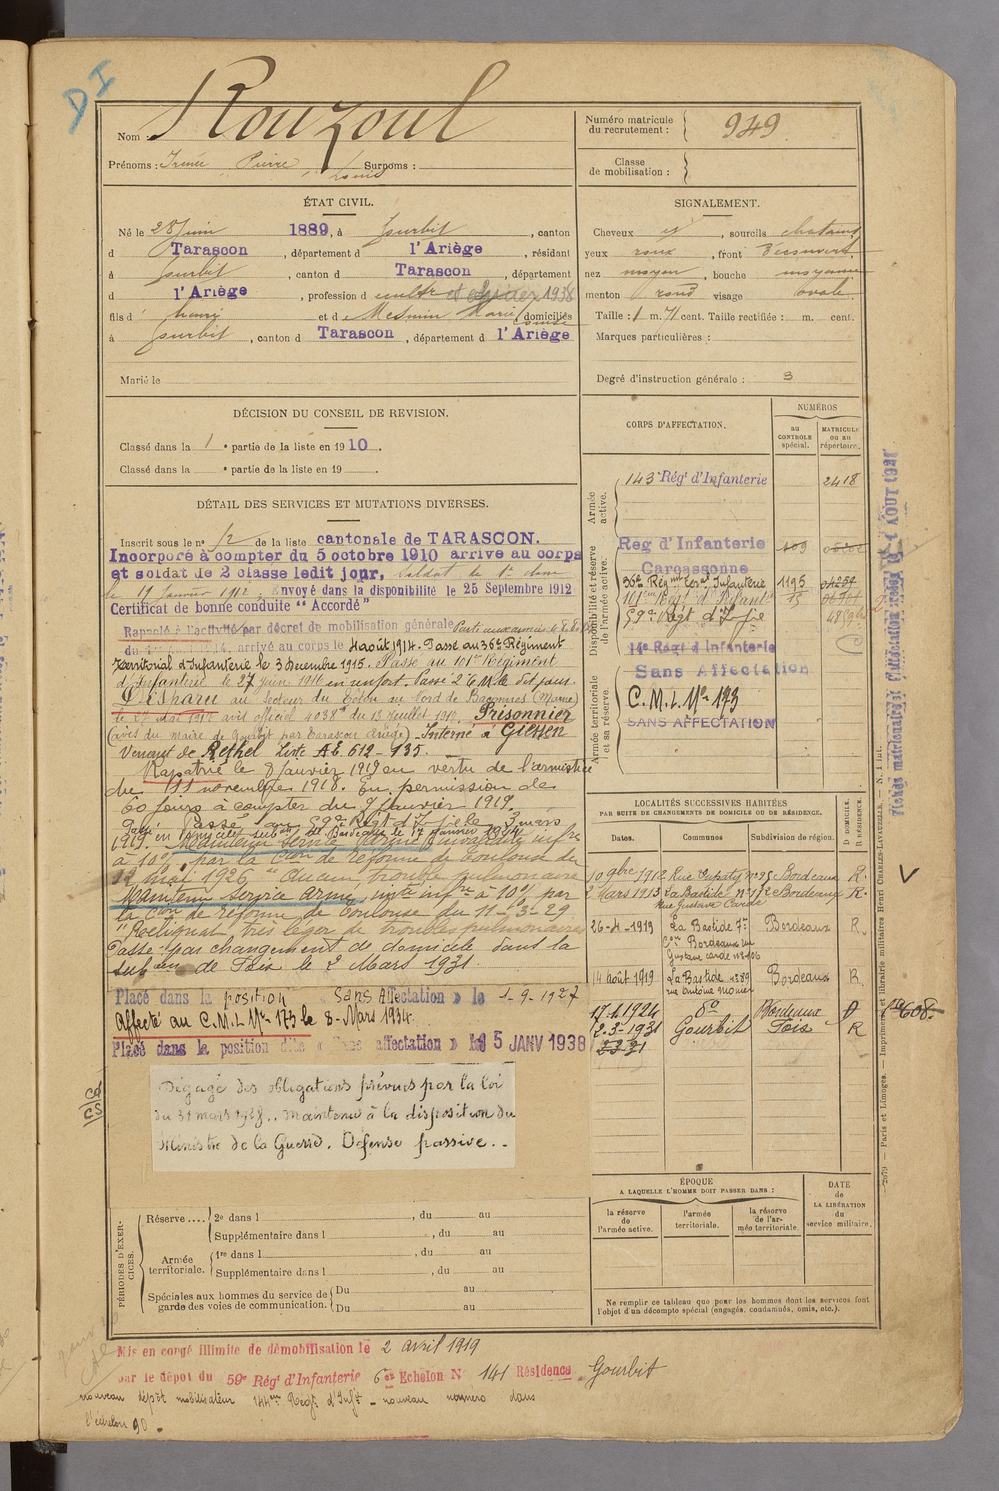 DI
Nom Rouzoul
Prénoms : Irénée Pierre Louis Surnoms :
Numéro matricule du recrutement : 949
Classe de mobilisation :
ÉTAT CIVIL.
Né le 28 Juin 1889, à Gourbit, canton
d Tarascon, département d l'Ariège, résidant
à Gourbit, canton d Tarascon, département
d l'Ariège, profession d cultr 1938
fils d' henri et d Mesmin Marie Louise, domiciliés
à Gourbit, canton d Tarascon, département d l'Ariège
Marié le
SIGNALEMENT.
Cheveux et, sourcils chatains
yeux roux, front découvert
nez moyen, bouche moyenne
menton rond visage ovale.
Taille : 1 m. 71 cent. Taille rectifiée : m. cent.
Marques particulières :
Degré d'instruction générale : 3
DÉCISION DU CONSEIL DE REVISION.
Classé dans la 1e partie de la liste en 1910.
Classé dans la e partie de la liste en 19 .
DÉTAIL DES SERVICES ET MUTATIONS DIVERSES.
Inscrit sous le n° 12 de la liste cantonale de TARASCON.
Incorporé à compter du 5 octobre 1910 arrivé au corps
et soldat de 2 classe ledit jour, Soldat de 1re classe
le 19 Janvier 1912. Envoyé dans la disponibilité le 25 Septembre 1912
Certificat de bonne conduite "Accordé"
Rappelé à l'activité par décret de mobilisation générale
du 1914, arrivé au corps le 4 août 1914. Passé au 36e Régiment
territorial d'Infanterie le 3 Decembre 1915. Passé au 101e Régiment
d'Infanterie le 27 juin 1916 en renfort. Passé 2e C.M. le dit jour.
Disparu au Secteur du Téton au Nord de Baconnes (Marne)
le 27 Mai 1917 avis officiel 4038 du 13 Juillet 1917. Prisonnier
(avis du maire de Gourbit par Tarascon Ariège) – Interné à Giessen
Venant de Rethel Liste AE 612 - 135.
Rapatrié le 8 Janvier 1919 en vertu de l'armistice
du 11 novembre 1918. En permission de
60 jours à compter du 9 Janvier 1919.
Passé au 59e Régt d'Inf le 3 mars
1919. Passé en domicile subdon de Bordeaux le 17 Janvier 1924
Maintenu service armé invalidité infre
à 10% par la Con de réforme de Toulouse du
12 mai 1926 "Aucun trouble pulmonaire
Maintenu service armé, invté infre à 10% par
la Con de réforme de Toulouse du 11-3-29
"Reliquat très léger de troubles pulmonaires
Passé par changement de domicile dans la
subdon de Foix le 2 Mars 1931.
Placé dans la position « Sans Affectation » le 1-9-1927
Affecté au C.M.I. No 173 le 8 - Mars 1934.
Placé dans la position dite « Sans affectation » le 15 JANV 1938
Dégagé des obligations prévues par la loi
du 31 mars 1928.. maintenu à la disposition du
Ministre de la Guerre. Défense passive. -
CORPS D'AFFECTATION.
NUMÉROS
au CONTROLE spécial.
MATRICULE ou au répertoire.
Armée active.
143e Régt d'Infanterie 2418
Disponibilité et réserve de l'armée active.
Reg d'Infanterie
Carcassonne
36e Régiment Teral Infanterie 1195
101eme Régt d'Infant
59e Régt d'Infie
14e Régt d'Infanterie
Sans Affectation
Armée territoriale et sa réserve.
C.M.I. No 173
SANS AFFECTATION
LOCALITÉS SUCCESSIVES HABITÉES
PAR SUITE DE CHANGEMENTS DE DOMICILE OU DE RÉSIDENCE.
Dates. Communes Subdivision de région. D DOMICILE. R RÉSIDENCE.
10 9bre 1912 Rue No 98 Bordeaux R.
2 Mars 1913 La Bastide No 172 Bordeaux R.
Rue Gustave Carde
26-4-1919 La Bastide 7e Bordeaux R.
Con Bordeaux rue
Gustave carde No 106
14 août 1919 La Bastide No 89 Bordeaux R
rue Antoine Monier
17-1-1924 do Bordeaux D
2-3-1931 Gourbit Foix R
No 608.
ÉPOQUE
A LAQUELLE L'HOMME DOIT PASSER DANS :
la réserve de l'armée active.
l'armée territoriale.
la réserve de l'armée territoriale.
DATE de LA LIBÉRATION du service militaire.
Ne remplir ce tableau que pour les hommes dont les services font
l'objet d'un décompte spécial (engagés, condamnés, omis, etc.).
PÉRIODES D'EXERCICES.
Réserve .... 2e dans l , du au
Supplémentaire dans l , du au
Armée territoriale. 1re dans l , du au
Supplémentaire dans l , du au
Spéciales aux hommes du service de garde des voies de communication. Du au
Du au
Mis en congé illimité de démobilisation le 2 avril 1919
par le dépot du 59e Régt d'Infanterie 6e Echelon N° 141 Résidence Gourbit
nouveau dépôt mobilisateur 144eme Régt d'Inft - nouveau numéro dans
l'échelon 90.
2079 — Paris et Limoges. — Imprimerie et librairie militaires Henri CHARLES-LAVAUZELLE. — N. 1 int.